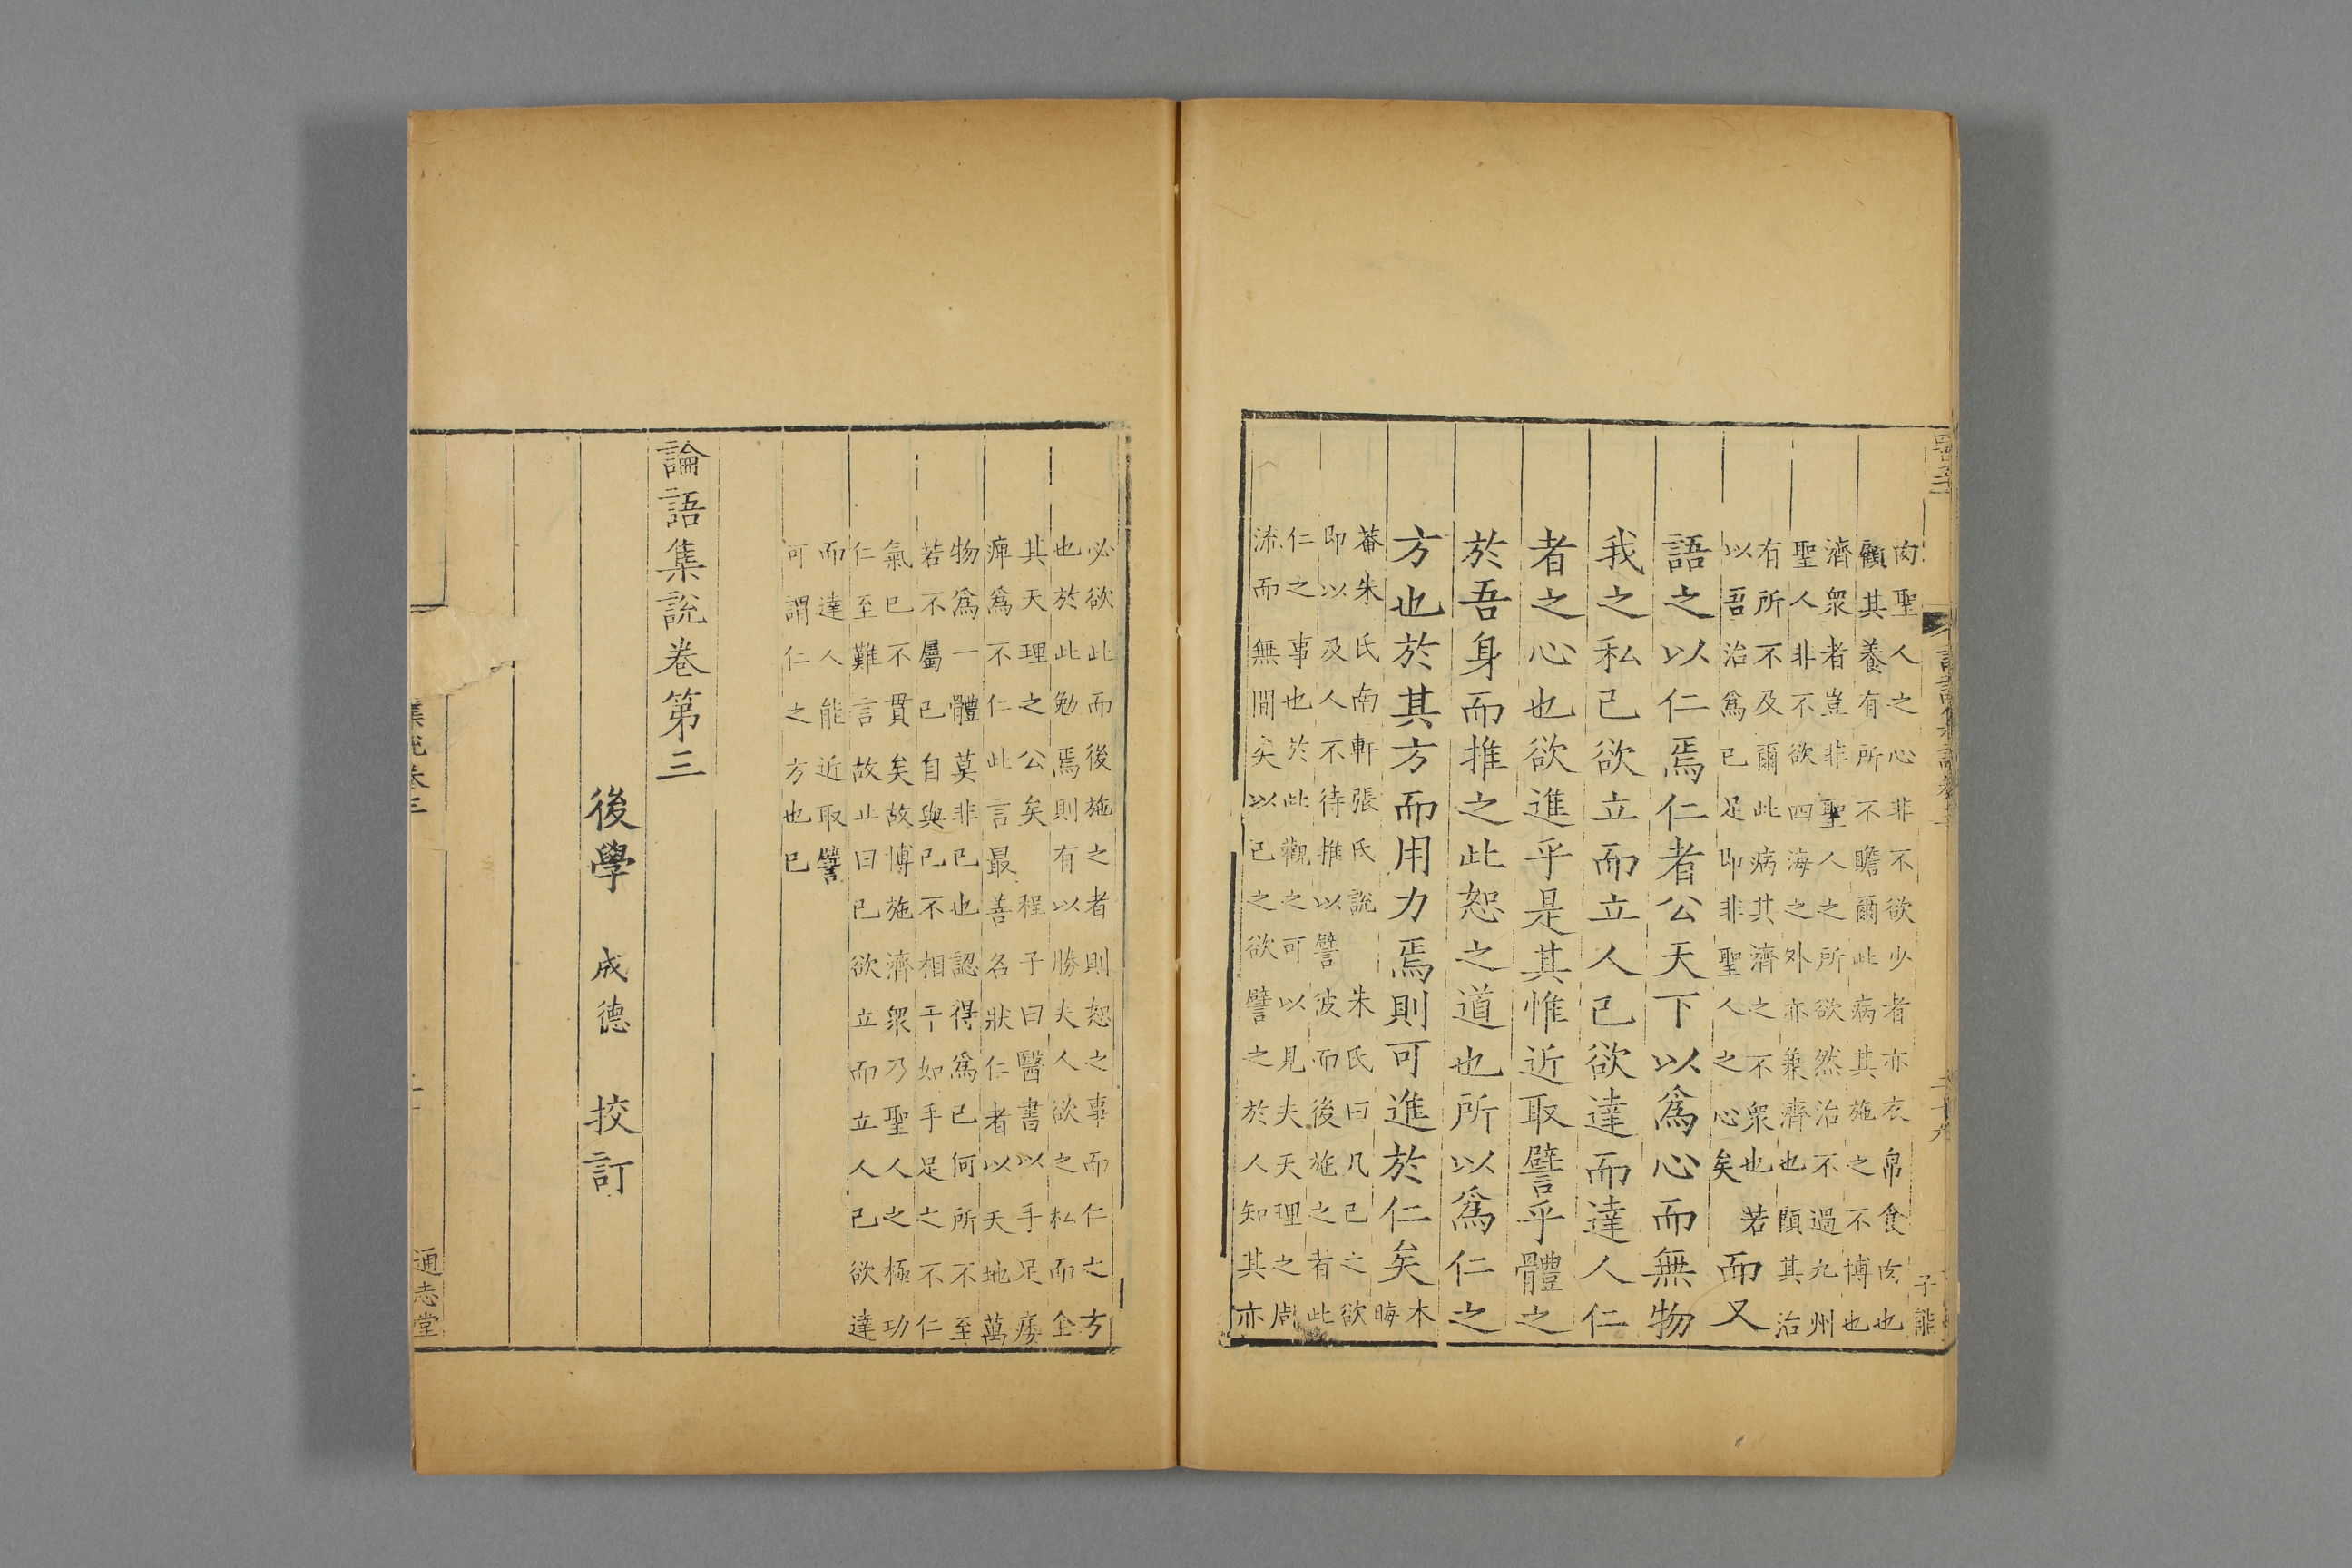 論語集說卷三
二十九
肉聖人之心非不欲少者亦衣帛食肉也
顧其養有所不贍爾此病其施之不博也
濟衆者豈非聖人之所欲然治不過九州
聖人非不欲四海之外亦兼濟也顧其治
有所不及爾此病其濟之不衆也 若
以吾治爲已足即非聖人之心矣
而又
語之以仁焉仁者公天下以爲心而無物
我之私己欲立而立人己欲達而達人仁
者之心也欲進乎是其惟近取譬乎體之
於吾身而推之此恕之道也所以爲仁之
方也於其方而用力焉則可進於仁矣
木
晦
菴朱氏南軒張氏說 朱氏曰凡己之欲
即以及人不待推以譬彼而後施之者此
仁之事也於此觀之可以見夫天理之周
流而無間矣以己之欲譬之於人知其亦
必欲此而後施之者則恕之事而仁之方
也於此勉焉則有以勝夫人欲之私而全
其天理之公矣 程子曰醫書以手足痿
痺爲不仁此言最善名狀仁者以天地萬
物爲一體莫非己也認得爲己何所不至
若不屬己自與己不相干如手足之不仁
氣已不貫矣故博施濟衆乃聖人之極功
仁至難言故止曰己欲立而立人己欲達
而達人能近取譬
可謂仁之方也已
論語集說卷第三
後學 成德 挍訂
集說卷三
通志堂